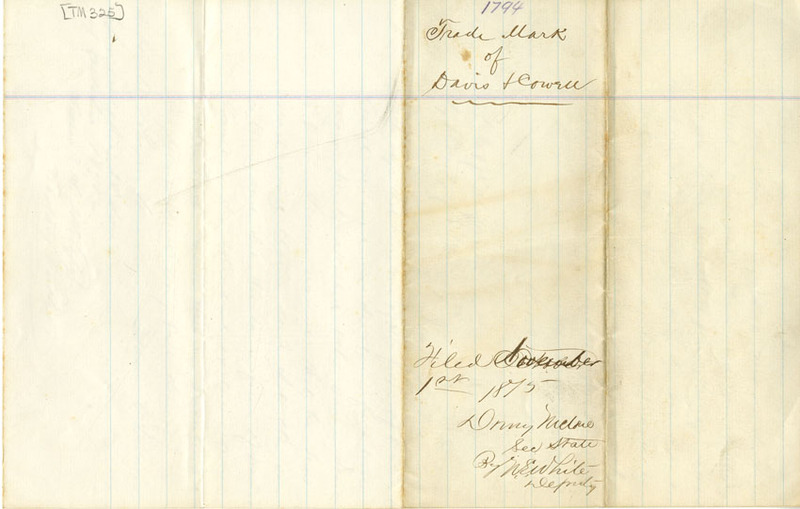 [TM 325]
1794
Trade Mark
of
Davis & Cowell
Filed
1st 1875
Drury Melone
Sec State
By W. E. White
Deputy